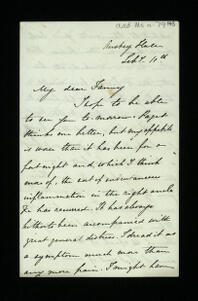 Add Ms a 79/48
Sept. 10th
My dear Fanny
I hope to be able
to see you to-morrow. Paget
thinks me better, but my appetite
is worse than it has been for a
fortnight and, which I think
more of, the out of
inflammation in the right ancle
&c has recurred. It has always
hitherto been accompanied with
great general distress. I dread it as
a symptom much more than
any mere pain. I might have